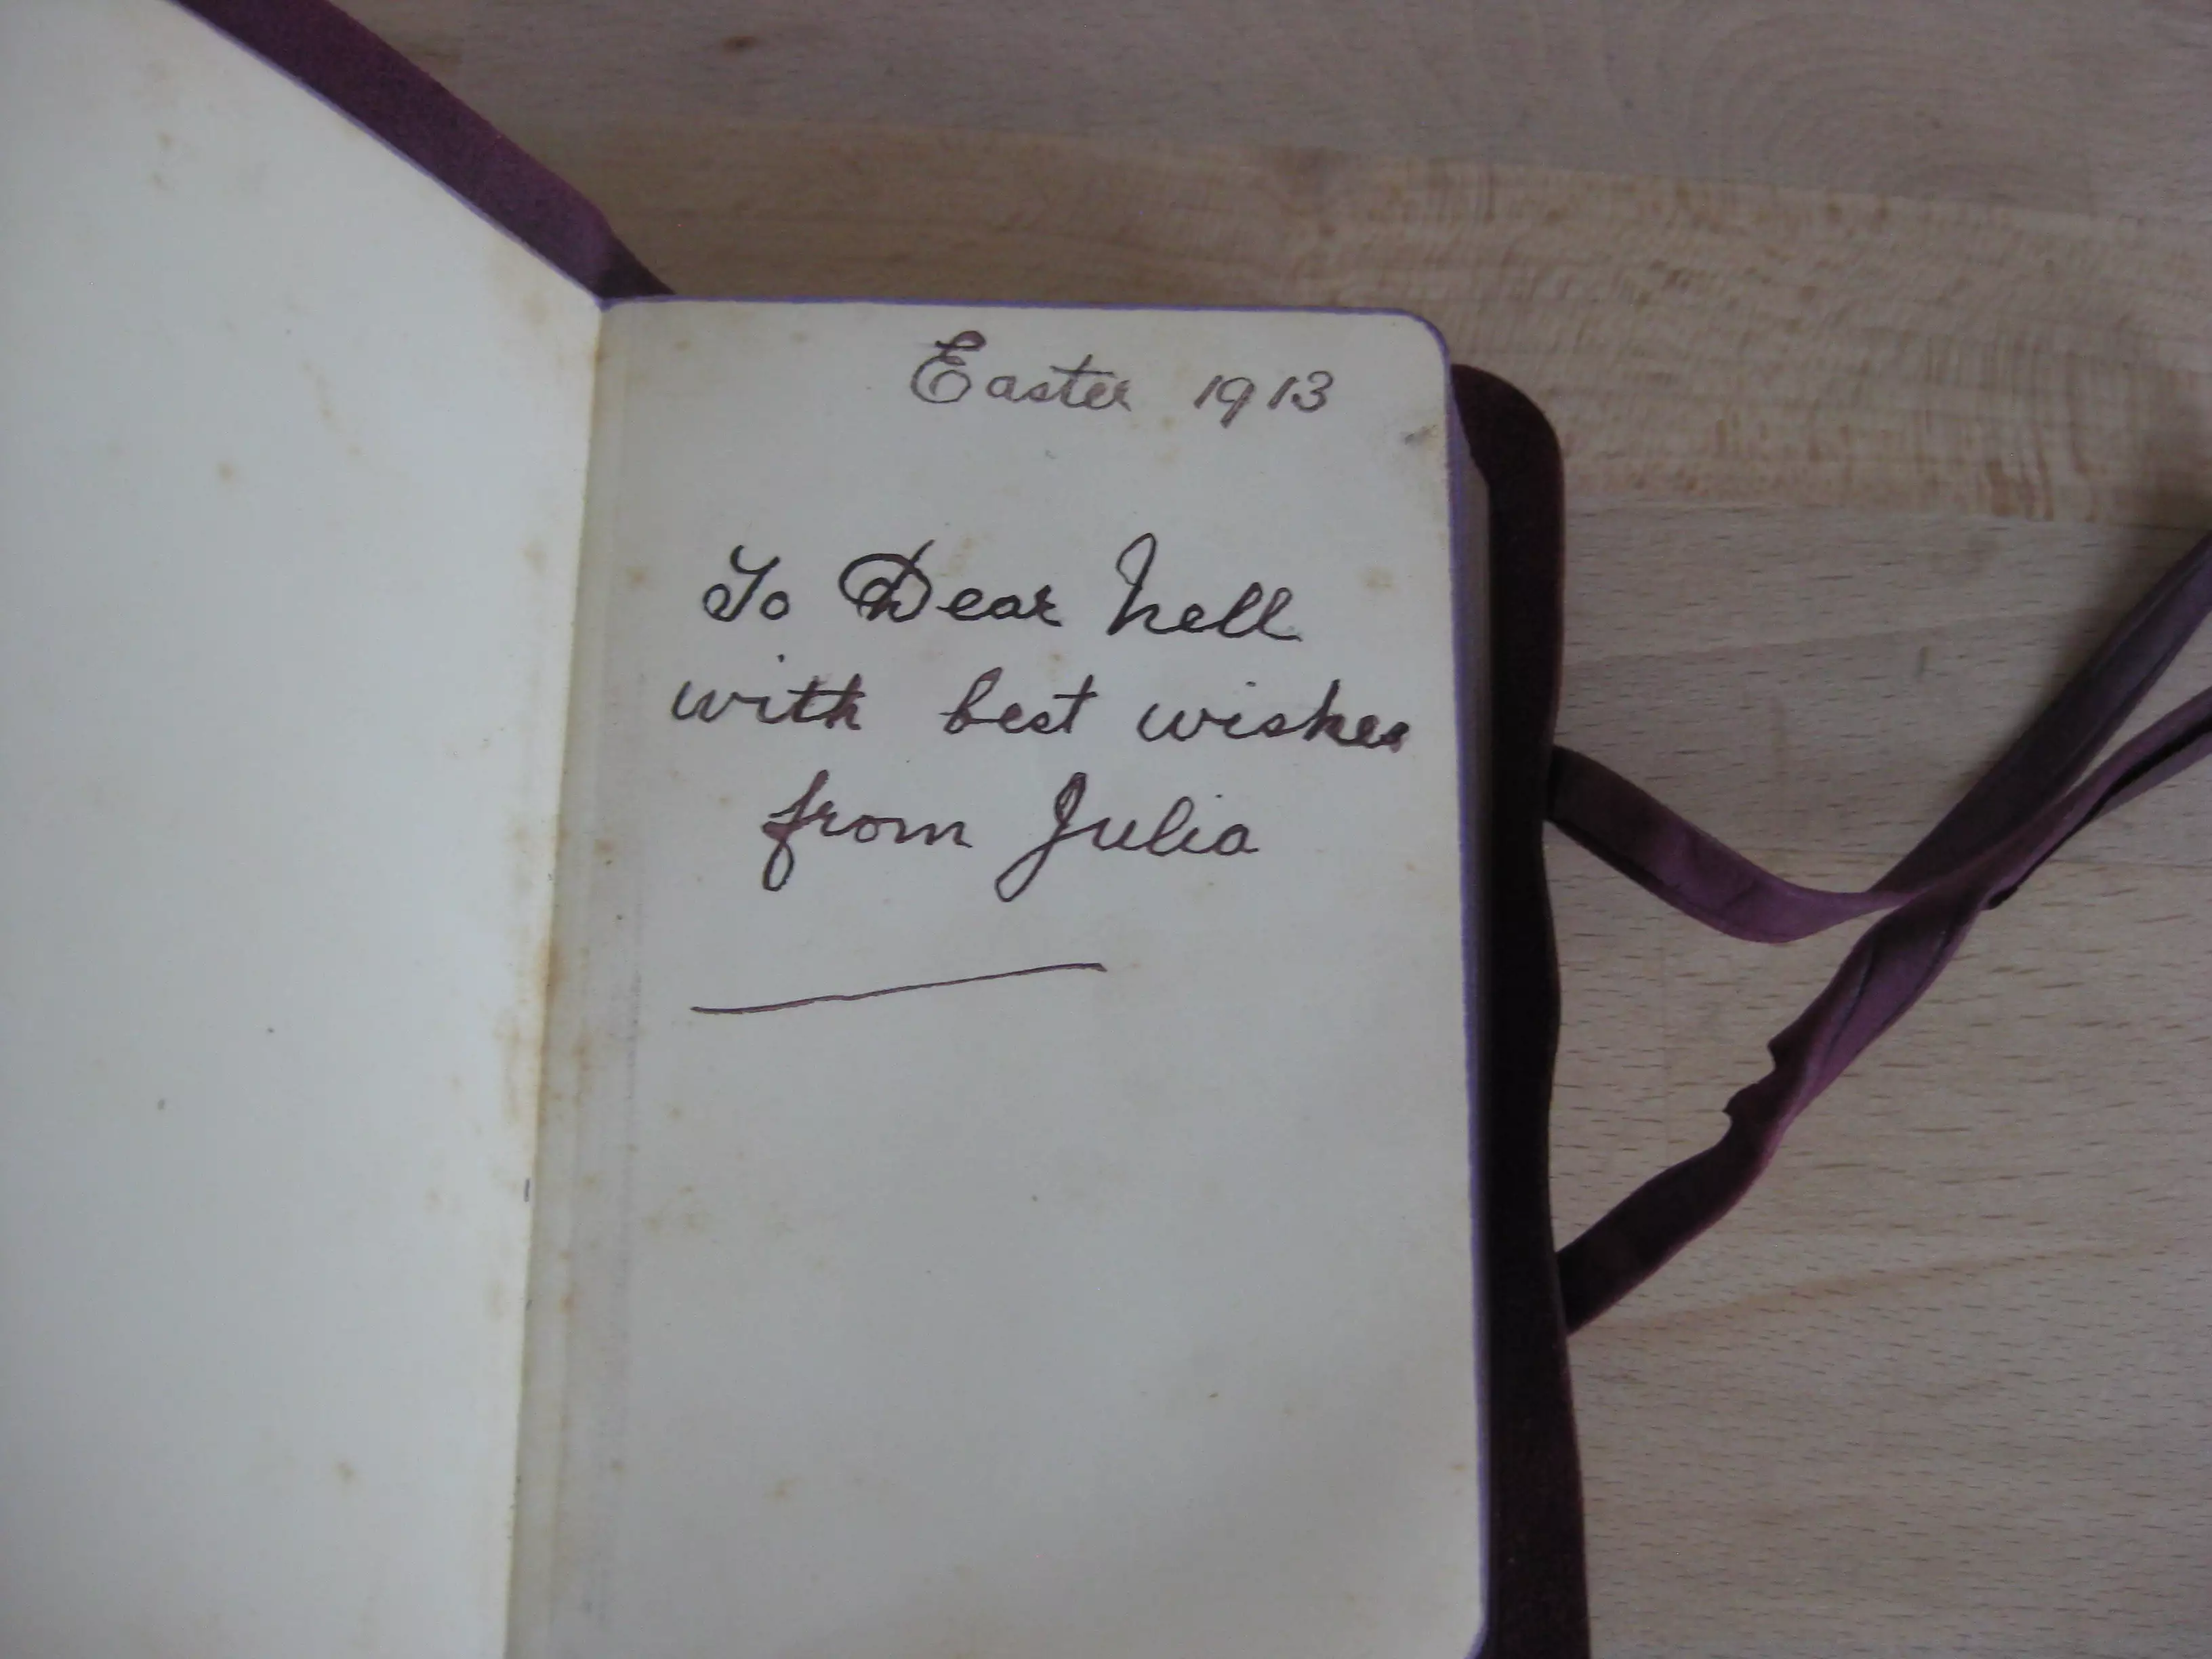 Easter 1913
To Dear Nell
with best wishes
from Julia